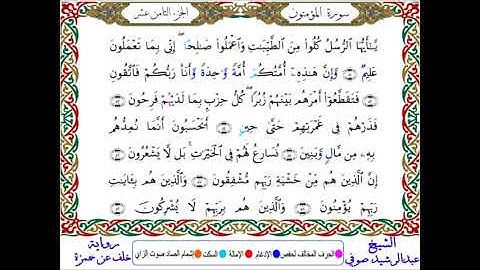 سورة المؤمنون
الجزء الثامن عشر
يَٰٓأَيُّهَا ٱلرُّسُلُ كُلُوا۟ مِنَ ٱلطَّيِّبَٰتِ وَٱعْمَلُوا۟ صَٰلِحًا ۖ إِنِّى بِمَا تَعْمَلُونَ
عَلِيمٌ ٥١ وَإِنَّ هَٰذِهِۦٓ أُمَّتُكُمْ أُمَّةً وَٰحِدَةً وَأَنَا۠ رَبُّكُمْ فَٱتَّقُونِ
٥٢ فَتَقَطَّعُوٓا۟ أَمْرَهُم بَيْنَهُمْ زُبُرًا ۖ كُلُّ حِزْبٍۭ بِمَا لَدَيْهُمْ فَرِحُونَ ٥٣
فَذَرْهُمْ فِى غَمْرَتِهِمْ حَتَّىٰ حِينٍ ٥٤ أَيَحْسَبُونَ أَنَّمَا نُمِدُّهُم
بِهِۦ مِن مَّالٍ وَبَنِينَ ٥٥ نُسَارِعُ لَهُمْ فِى ٱلْخَيْرَٰتِ ۚ بَل لَّا يَشْعُرُونَ ٥٦
إِنَّ ٱلَّذِينَ هُم مِّنْ خَشْيَةِ رَبِّهِم مُّشْفِقُونَ ٥٧ وَٱلَّذِينَ هُم بِـَٔايَٰتِ
رَبِّهِمْ يُؤْمِنُونَ ٥٨ وَٱلَّذِينَ هُم بِرَبِّهِمْ لَا يُشْرِكُونَ ٥٩
الشيخ
عبدالرشيد صوفي
الحرف المخالف لحفص الإدغام الإمالة السكت إشمام الصاد صوت الزاي
رواية
خلف عن حمزة